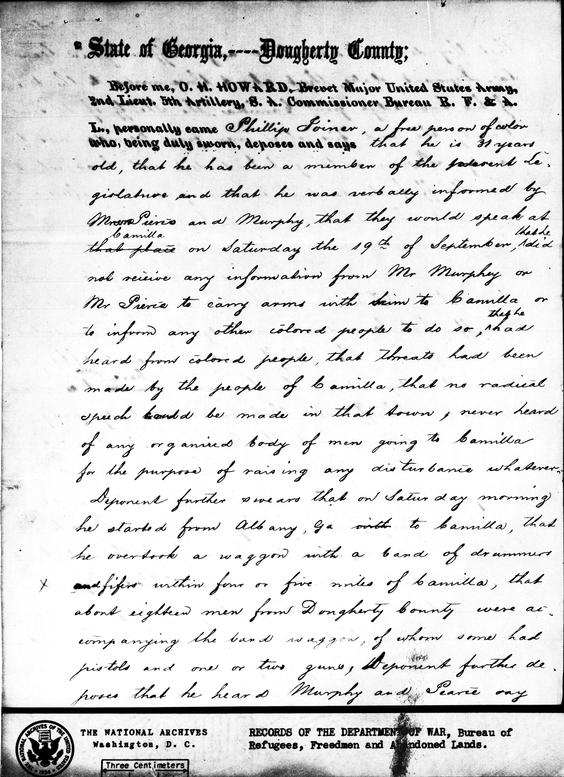 State of Georgia,----Dougherty County;
Before me, O. H. HOWARD, Brevet Major United States Army,
2nd Lieut. 5th Artillery, S. A. Commissioner Bureau R. F. & A.
L., personally came Phillip Joiner, a free person of color
who, being duly sworn, deposes and says that he is 31 years
old, that he has been a member of the Le-
gislature and that he was verbally informed by
Pierce and Murphy, that they would speak at
Camilla
that place on Saturday the 19th of September, that he did
not reicive any information from Mr Murphey or
Mr Pierce to carry arms with him to Camilla or
to inform any other colored people to do so, that he had
heard from colored people, that threats had been
made by the people of Camilla, that no radical
speech could be made in that town, never heard
of any organised body of men going to Camilla
for the purpose of raising any disturbance whatever-
Deponent further swears that on Saturday morning
he started from Albany, Ga with to Camilla, that
he overtook a waggon with a band of drummers
x and fifirs within four or five miles of Camilla, that
about eighteen men from Dougherty County were ac-
companying the band waggon, of whom some had
pistols and one or two guns, Deponent further de-
poses that he heard Murphy and Pearce say
THE NATIONAL ARCHIVES
Washington, D. C.
RECORDS OF THE DEPARTMENT OF WAR, Bureau of
Refugees, Freedmen and Abandoned Lands.
Three Centimeters